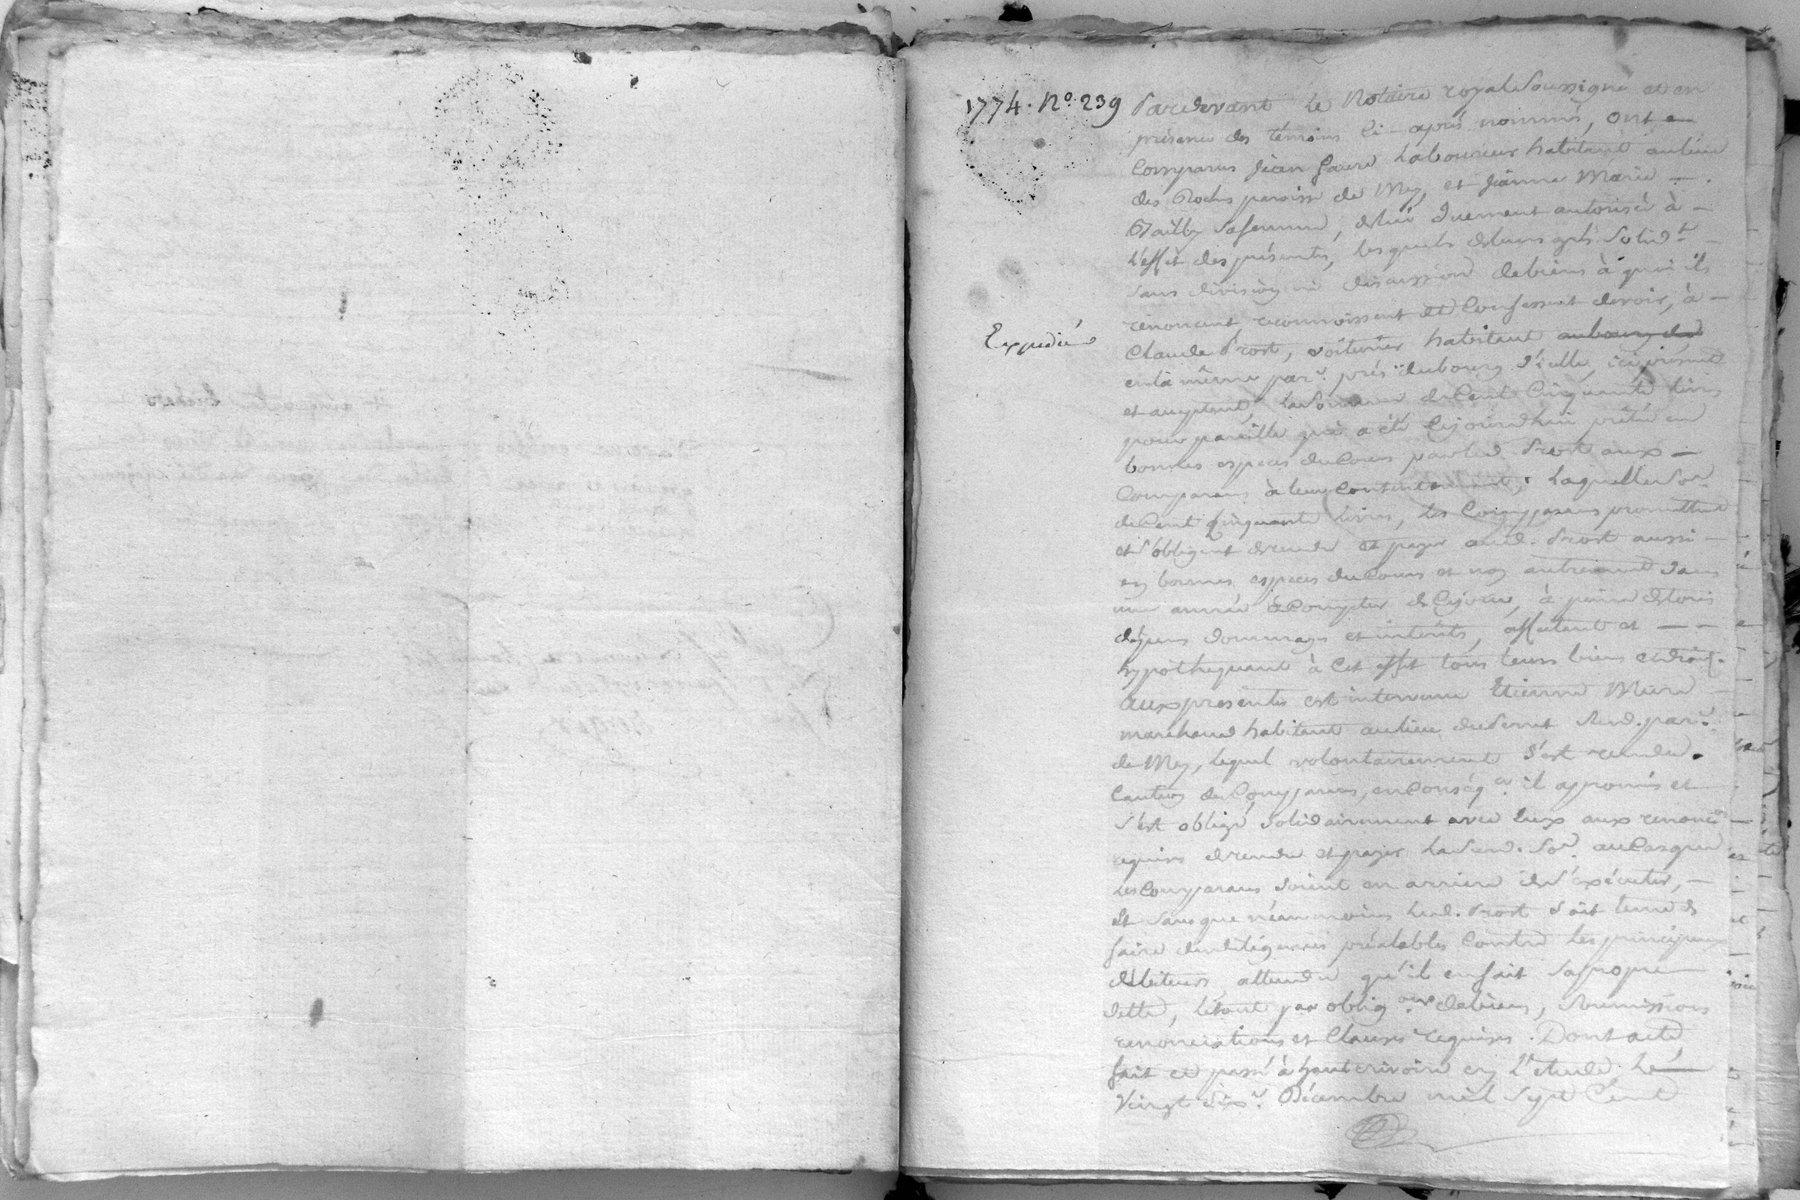 1774. No. 239
Expédiée
Pardevant le Notaire royal Soussigné et en
présence des témoins ci-après nommés, ont
Comparus Jean faure Laboureur habitant au lieu
des Rochs paroisse de Mey, et Jeanne Marie
Sa femme, de lui duement autorisée à
L'effet des présentes, lesquels de leurs grés Solid.t
Sans division ni discussion de biens à quoi ils
renoncent reconnoissent et Confessent devoir, à
Claude Prost, voiturier habitant au bourg de
en la même par.e près du bourg d'icelle, ici présent
et acceptant, La Somme de Cent Cinquante livres
pour pareille qui a été Cejourd'hui prêtée en
bonnes espèces du Cours par led. Prost aux
Comparans à leur Contentement; Laquelle So.e
de Cent Cinquante livres, les Comparans promettent
et S'obligent de rendre et payer aud. Prost aussi
en bonnes espèces du Cours et non autrement dans
une année à Compter de Cejour, à peine de tous
dépens dommages et intérêts, affectent et
hypothequant à Cet effet tous leurs biens et droits.
Aux presentes est intervenu Etienne
marchand habitant au lieu du Susd. par.e
de Mey, lequel volontairement S'est rendu
Caution des Comparans, en Conség.ce il a promis et
S'est obligé Solidairement avec Eux aux renonc.ons
requises de rendre et payer La Susd. So.e au Cas que
Les Comparans Soient en arriere de S'exécuter,
Et Sans que néanmoins Led. Prost Soit tenu de
faire des diligences préalables Contre Les principaux
débiteurs, attendu qu'il en fait Sa propre
dette, Le tout par oblig.ons de biens, Soumissions
renonciations et Clauses requises. Dont acte
fait et passé à hauterivoire en L'étude Le
Vingt Six.e Décembre mil Sept Cent